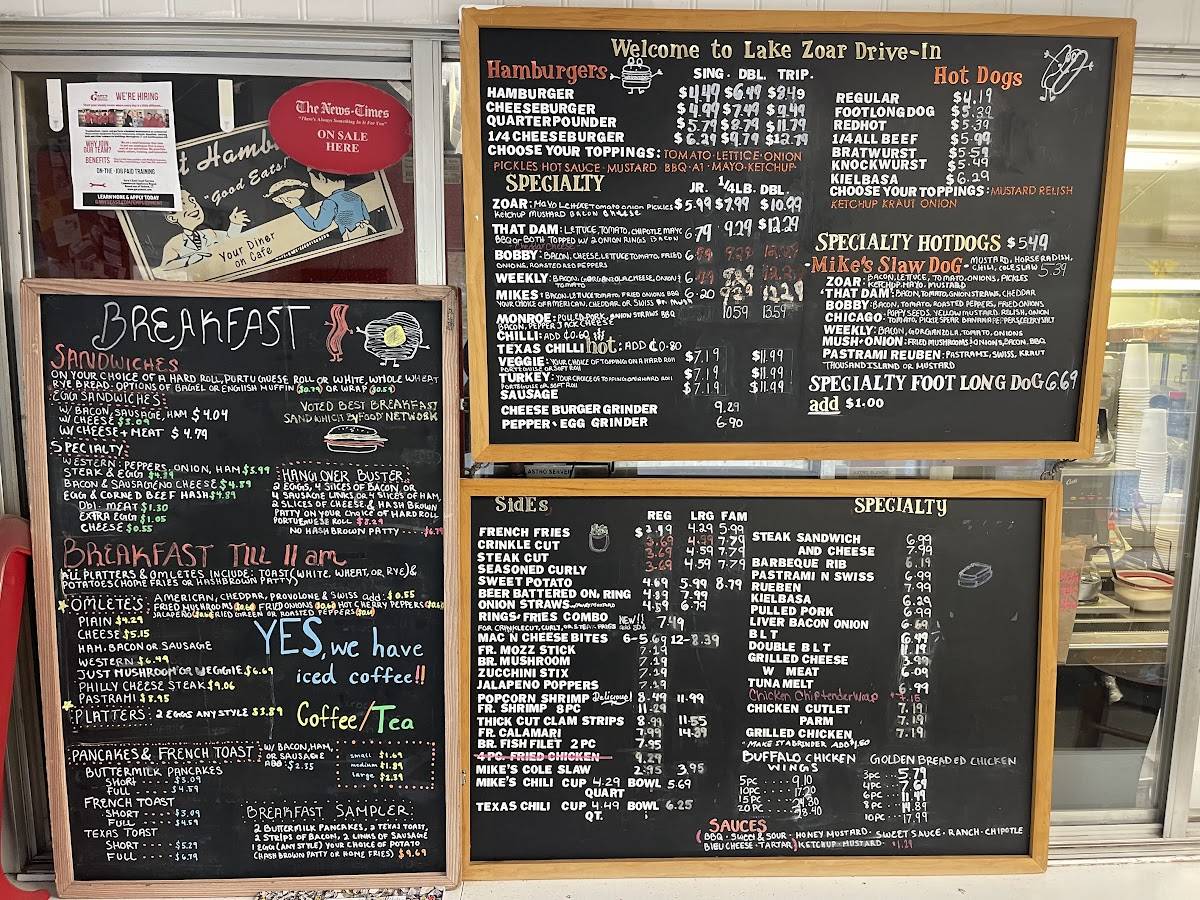 WE'RE HIRING
WHY JOIN
OUR TEAM?
BENEFITS
ON-THE-JOB PAID TRAINING
LEARN MORE & APPLY TODAY
The News-Times
"There's Always Something In It For You"
ON SALE
HERE
"Good Eats"
Your Diner
on Cafe
BREAKFAST
SANDWICHES
ON YOUR CHOICE OF A HARD ROLL, PORTUGUESE ROLL OR WHITE, WHOLE WHEAT
RYE BREAD. OPTIONS OF BAGEL OR ENGLISH MUFFIN OR WRAP
EGG SANDWICHES:
W/BACON, SAUSAGE, HAM $4.04
W/CHEESE $3.09
W/CHEESE + MEAT $4.79
VOTED BEST BREAKFAST
SANDWHICH BY FOOD NETWORK
SPECIALTY:
WESTERN: PEPPERS, ONION, HAM $3.99
STEAK & EGG $4.89
BACON & SAUSAGE NO CHEESE $4.59
EGG & CORNED BEEF HASH $4.89
Dbl. MEAT $1.30
EXTRA EGG $1.05
CHEESE $0.55
HANGOVER BUSTER:
2 EGGS, 4 SLICES OF BACON OR
4 SAUSAGE LINKS, OR 4 SLICES OF HAM,
2 SLICES OF CHEESE & HASH BROWN
PATTY ON YOUR CHOICE OF HARD ROLL
PORTUGUESE ROLL $8.29
NO HASH BROWN PATTY
BREAKFAST TILL 11 am
ALL PLATTERS & OMLETES INCLUDE: TOAST (WHITE, WHEAT, OR RYE) &
POTATOES (HOME FRIES OR HASHBROWN PATTY)
OMLETE'S: AMERICAN, CHEDDAR, PROVOLONE & SWISS add: $0.55
FRIED MUSHROOMS FRIED ONIONS HOT CHERRY PEPPERS
JALAPENO FRIED GREEN OR ROASTED PEPPERS
PLAIN $4.29
CHEESE $5.15
HAM, BACON OR SAUSAGE
WESTERN $6.49
JUST MUSHROOM OR VEGGIE $6.69
PHILLY CHEESE STEAK $9.06
PASTRAMI $8.95
PLATTERS: 2 EGGS ANY STYLE $3.89
YES, we have
iced coffee!!
Coffee/Tea
small $1.69
medium $1.89
large $2.39
PANCAKES & FRENCH TOAST: W/BACON, HAM,
OR SAUSAGE
ADD: $2.35
BUTTERMILK PANCAKES
SHORT $3.09
FULL $4.59
FRENCH TOAST
SHORT $3.09
FULL $4.59
TEXAS TOAST
SHORT $5.29
FULL $6.79
BREAKFAST SAMPLER:
2 BUTTERMILK PANCAKES, 2 TEXAS TOAST,
2 STRIPS OF BACON, 2 LINKS OF SAUSAGE
1 EGG (ANY STYLE) YOUR CHOICE OF POTATO
(HASH BROWN PATTY OR HOME FRIES) $9.69
Welcome to Lake Zoar Drive-In
Hamburgers SING. DBL. TRIP.
HAMBURGER $4.49 $6.49 $8.49
CHEESEBURGER $4.99 $7.49 $9.49
QUARTERPOUNDER $5.79 $8.79 $11.79
1/4 CHEESEBURGER $6.29 $9.79 $12.79
CHOOSE YOUR TOPPINGS: TOMATO·LETTICE·ONION
PICKLES HOT SAUCE·MUSTARD BBQ·A1·MAYO·KETCHUP
SPECIALTY JR. 1/4LB. DBL.
ZOAR: MAYO LETTUCE TOMATO ONION PICKLES $5.99 $7.99 $10.99
KETCHUP MUSTARD BACON CHEESE
THAT DAM: LETTUCE, TOMATO, CHIPOTLE MAYO 6.79 9.29 $12.29
BBQ OR BOTH TOPPED W/2 ONION RINGS BACON
+ Cheddar Cheese
BOBBY: BACON, CHEESE, LETTUCE TOMATO, FRIED
ONIONS, ROASTED RED PEPPERS
WEEKLY: BACON, GORGANZOLA CHEESE, ONION &
TOMATO
MIKES: BACON, LETUCE TOMATO, FRIED ONIONS BBQ 6.20 9.29 12.29
YOUR CHOICE OF AMERICAN, CHEDDAR, OR SWISS
MONROE: PULLED PORK, ONION STRAWS BBQ 10.59 13.59
BACON, PEPPER JACK CHEESE
CHILLI: ADD ₵0.60
TEXAS CHILLI hot: ADD ₵0.80
VEGGIE: YOUR CHOICE OF TOPPING ON A HARD ROLL $7.19 $11.99
PORTEGUISE OR SOFT ROLL
TURKEY: YOUR CHOICE OF TOPPING ON A HARD ROLL $7.19 $11.49
PORTEGUISE OR SOFT ROLL
SAUSAGE $7.19 $11.49
CHEESE BURGER GRINDER 9.29
PEPPER·EGG GRINDER 6.90
Hot Dogs
REGULAR $4.19
FOOTLONG DOG $5.39
REDHOT $5.39
1/4 ALL BEEF $5.99
BRATWURST $5.49
KNOCKWURST $5.49
KIELBASA $6.29
CHOOSE YOUR TOPPINGS: MUSTARD RELISH
KETCHUP KRAUT ONION
SPECIALTY HOTDOGS $5.49
Mike's Slaw Dog - MUSTARD, HORSERADISH,
CHILI, COLESLAW 5.39
ZOAR: BACON, LETTUCE, TOMATO, ONIONS, PICKLES
KETCHUP, MAYO, MUSTARD
THAT DAM: BACON, TOMATO, ONION STRAWS, CHEDDAR
BOBBY: BACON, TOMATO, ROASTED PEPPERS, FRIED ONIONS
CHICAGO: POPPY SEEDS, YELLOW MUSTARD, RELISH, ONION
TOMATO, PICKLE SPEAR BANANA PEPPERS CELERY SALT
WEEKLY: BACON, GORGANZOLA, TOMATO, ONIONS
MUSH·ONION: FRIED MUSHROOMS & ONIONS, BACON, BBQ
PASTRAMI REUBEN: PASTRAMI, SWISS, KRAUT
THOUSAND ISLAND OR MUSTARD
SPECIALTY FOOT LONG DOG 6.69
add $1.00
SidEs
REG LRG FAM
FRENCH FRIES 4.39 5.99
CRINKLE CUT 3.69 4.99 7.79
STEAK CUT 3.69 4.59 7.79
SEASONED CURLY 3.69 4.59 7.79
SWEET POTATO 4.69 5.99 8.79
BEER BATTERED ON. RING 4.89 7.99
ONION STRAWS 4.89 6.79
RINGS·FRIES COMBO NEW!! 7.49
MAC N CHEESE BITES 6-5.69 12-8.39
FR. MOZZ STICK 7.19
BR. MUSHROOM 7.19
ZUCCHINI STIX 7.19
JALAPENO POPPERS 7.19
POPCORN SHRIMP Delicious! 8.49 11.99
FR. SHRIMP 8PC 11.29
THICK CUT CLAM STRIPS 8.99 11.55
FR. CALAMARI 7.99 14.39
BR. FISH FILET 2PC 7.95
4 PC. FRIED CHICKEN 9.29
MIKE'S COLE SLAW 2.95 3.95
MIKE'S CHILI CUP 4.29 BOWL 5.69
QUART
TEXAS CHILI CUP 4.49 BOWL 6.25
QT.
SPECIALTY
STEAK SANDWICH 6.99
AND CHEESE 7.99
BARBEQUE RIB 6.19
PASTRAMI N SWISS 6.99
RUEBEN 7.99
KIELBASA 6.20
PULLED PORK 6.99
LIVER BACON ONION 6.69
BLT 6.99
DOUBLE BLT 11.19
GRILLED CHEESE 3.99
W. MEAT 6.09
TUNA MELT 6.99
Chicken Chip tender Wrap
CHICKEN CUTLET 7.19
PARM 7.19
GRILLED CHICKEN 7.19
*MAKE IT A GRINDER ADD $1.50
BUFFALO CHICKEN
WINGS
5pc 9.10
10pc 17.20
15 PC 24.30
20 PC 28.40
GOLDEN BREADED CHICKEN
3pc 5.79
4PC 7.69
6 PC 11.49
8 PC 14.89
10 PC 17.99
SAUCES
(BBQ · Sweet & SOUR · HONEY MUSTARD · SWEET SAUCE · RANCH · CHIPOTLE
BLEU CHEESE · TARTAR) KETCHUP · MUSTARD $1.29